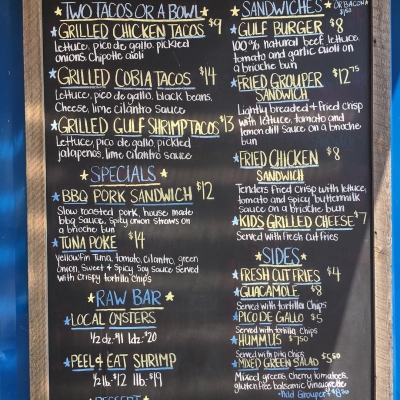 TWO TACOS OR A BOWL
GRILLED CHICKEN TACOS $9
lettuce, pico de gallo, pickled
onions, chipotle aioli
GRILLED COBIA TACOS $14
Lettuce, pico de gallo, black beans,
cheese, lime cilantro sauce
GRILLED GULF SHRIMP TACOS $13
Lettuce, pico de gallo, pickled
jalapeños, lime cilantro sauce
SPECIALS
BBQ PORK SANDWICH $12
Slow roasted pork, house made
bbq sauce, spicy onion straws on
a brioche bun
TUNA POKE $14
Yellowfin Tuna, tomato, cilantro, green
onion, sweet + spicy soy sauce served
with crispy tortilla chips
RAW BAR
LOCAL OYSTERS
1/2 dz. $11 1dz. $20
PEEL & EAT SHRIMP
1/2 lb. $12 1lb. $19
DESSERT
SANDWICHES
OR BACON
GULF BURGER $8
100% natural beef, lettuce,
tomato and garlic aioli on
a brioche bun
FRIED GROUPER $12.75
SANDWICH
Lightly breaded + fried crisp
with lettuce, tomato and
lemon dill sauce on a brioche
bun
FRIED CHICKEN $8
SANDWICH
Tenders fried crisp with lettuce,
tomato and spicy buttermilk
sauce on a brioche bun
KIDS GRILLED CHEESE $7
Served with fresh cut fries
SIDES
FRESH CUT FRIES $4
GUACAMOLE $8
Served with tortilla chips
PICO DE GALLO $5
Served with tortilla chips
HUMMUS $7.50
Served with pita chips
MIXED GREEN SALAD $5.50
Mixed greens, cherry tomatoes,
gluten free balsamic vinaigrette
Add Grouper +$8.50